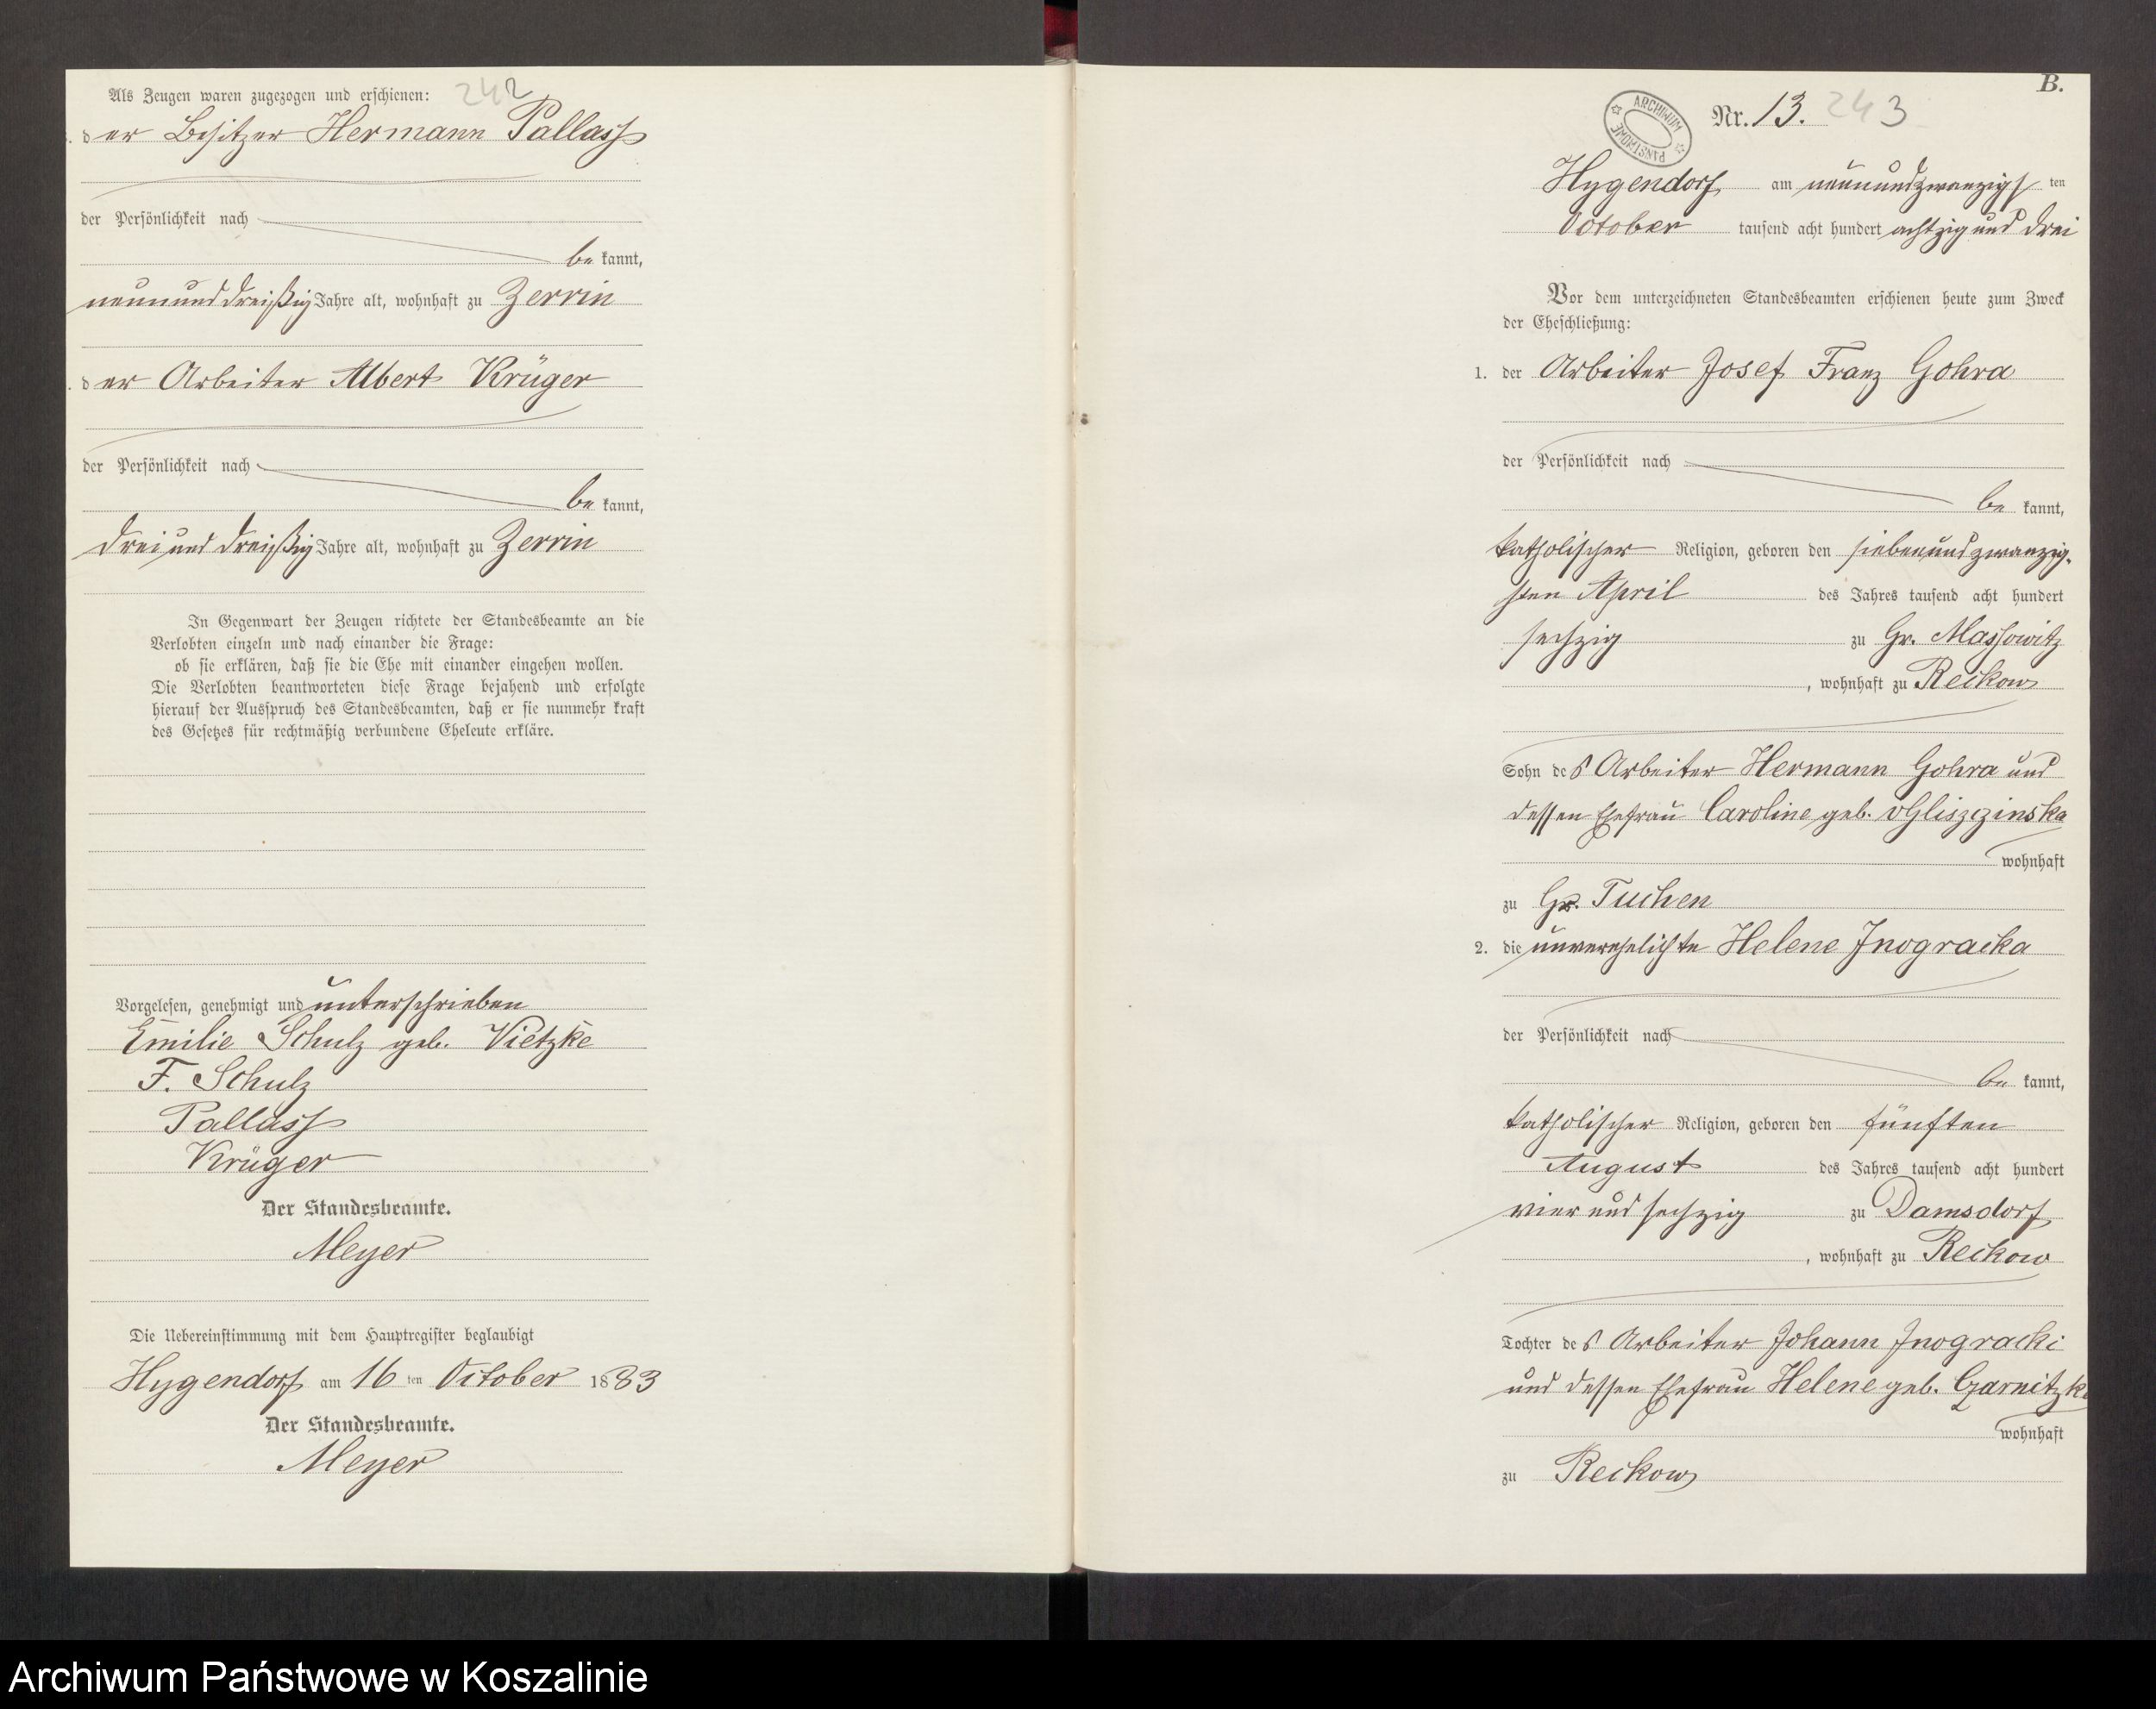 242
Als Zeugen waren zugezogen und erschienen:
der Besitzer Hermann Pallass
der Persönlichkeit nach
be kannt,
neunund dreißig Jahre alt, wohnhaft zu Zerrin
der Arbeiter Albert Krüger
der Persönlichkeit nach
be kannt,
drei und dreißig Jahre alt, wohnhaft zu Zerrin
In Gegenwart der Zeugen richtete der Standesbeamte an die
Verlobten einzeln und nach einander die Frage:
ob sie erklären, daß sie die Ehe mit einander eingehen wollen.
Die Verlobten beantworteten diese Frage bejahend und erfolgte
hierauf der Ausspruch des Standesbeamten, daß er sie nunmehr kraft
des Gesetzes für rechtmäßig verbundene Eheleute erkläre.
Vorgelesen, genehmigt und unterschrieben
Emilie Schulz geb. Vietzke
F. Schulz
Pallass
Krüger
Der Standesbeamte.
Meyer
Die Uebereinstimmung mit dem Hauptregister beglaubigt
Hygendorf am 16 ten October 1883
Der Standesbeamte.
Meyer
B.
ARCHIWUM PAŃSTWOWE
Nr. 13. 243
Hygendorf am neunundzwanzigs ten
October tausend acht hundert achtzig und drei
Vor dem unterzeichneten Standesbeamten erschienen heute zum Zweck
der Eheschließung:
1. der Arbeiter Josef Franz Gohra
der Persönlichkeit nach
be kannt,
katholischer Religion, geboren den siebenundzwanzig-
sten April des Jahres tausend acht hundert
sechzig zu Gr. Massowitz
, wohnhaft zu Reckow
Sohn des Arbeiter Hermann Gohra und
dessen Ehefrau Caroline geb. vGliszczinska
wohnhaft
zu Gr. Tuchen
2. die unverehelichte Helene Jnogracka
der Persönlichkeit nach
be kannt,
katholischer Religion, geboren den fünften
August des Jahres tausend acht hundert
vier und sechzig zu Damsdorf
, wohnhaft zu Reckow
Tochter des Arbeiter Johann Jnogracki
und dessen Ehefrau Helene geb. Czarnitzka
wohnhaft
zu Reckow
Archiwum Państwowe w Koszalinie